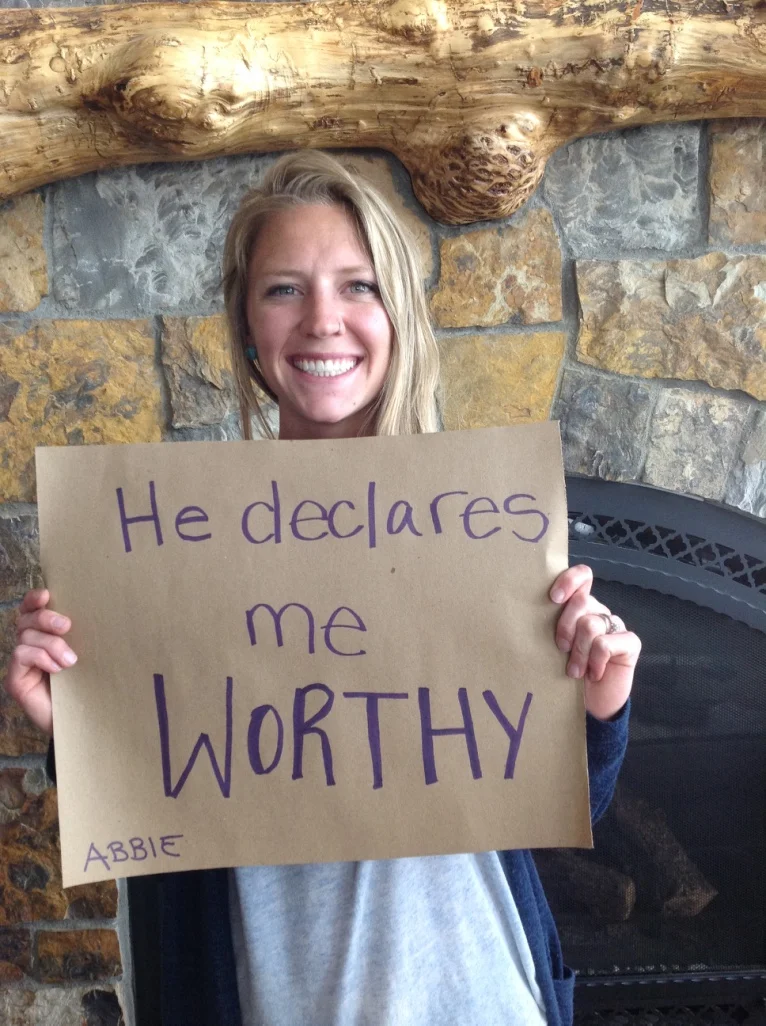 He declares
me
WORTHY
ABBIE